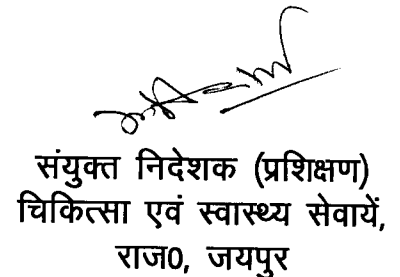 संयुक्त निदेशक (प्रशिक्षण)
चिकित्सा एवं स्वास्थ्य सेवायें,
राज0, जयपुर